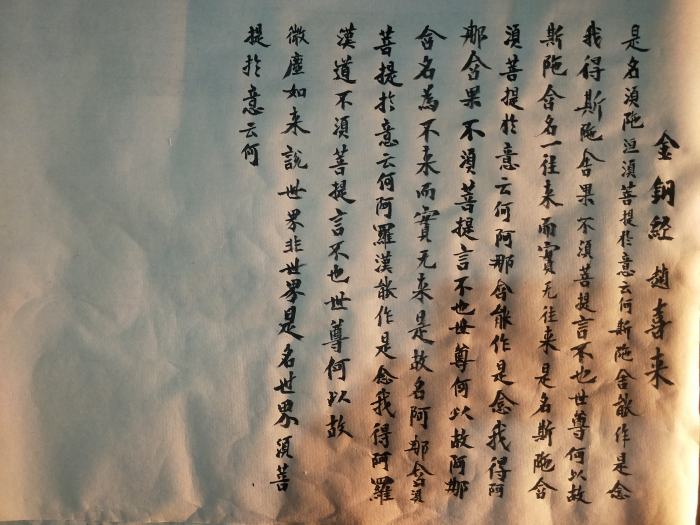 金鋼經 趙喜来
是名須陁洹須菩提於意云何斯陁含能作是念
我得斯陁含果不須菩提言不也世尊何以故
斯陁含名一往来而實无往来是名斯陁含
須菩提於意云何阿那含能作是念我得阿
那含果不須菩提言不也世尊何以故阿那
含名為不来而實无来是故名阿那含須
菩提於意云何阿羅漢能作是念我得阿羅
漢道不須菩提言不也世尊何以故
微塵如来說世界非世界是名世界須菩
提於意云何